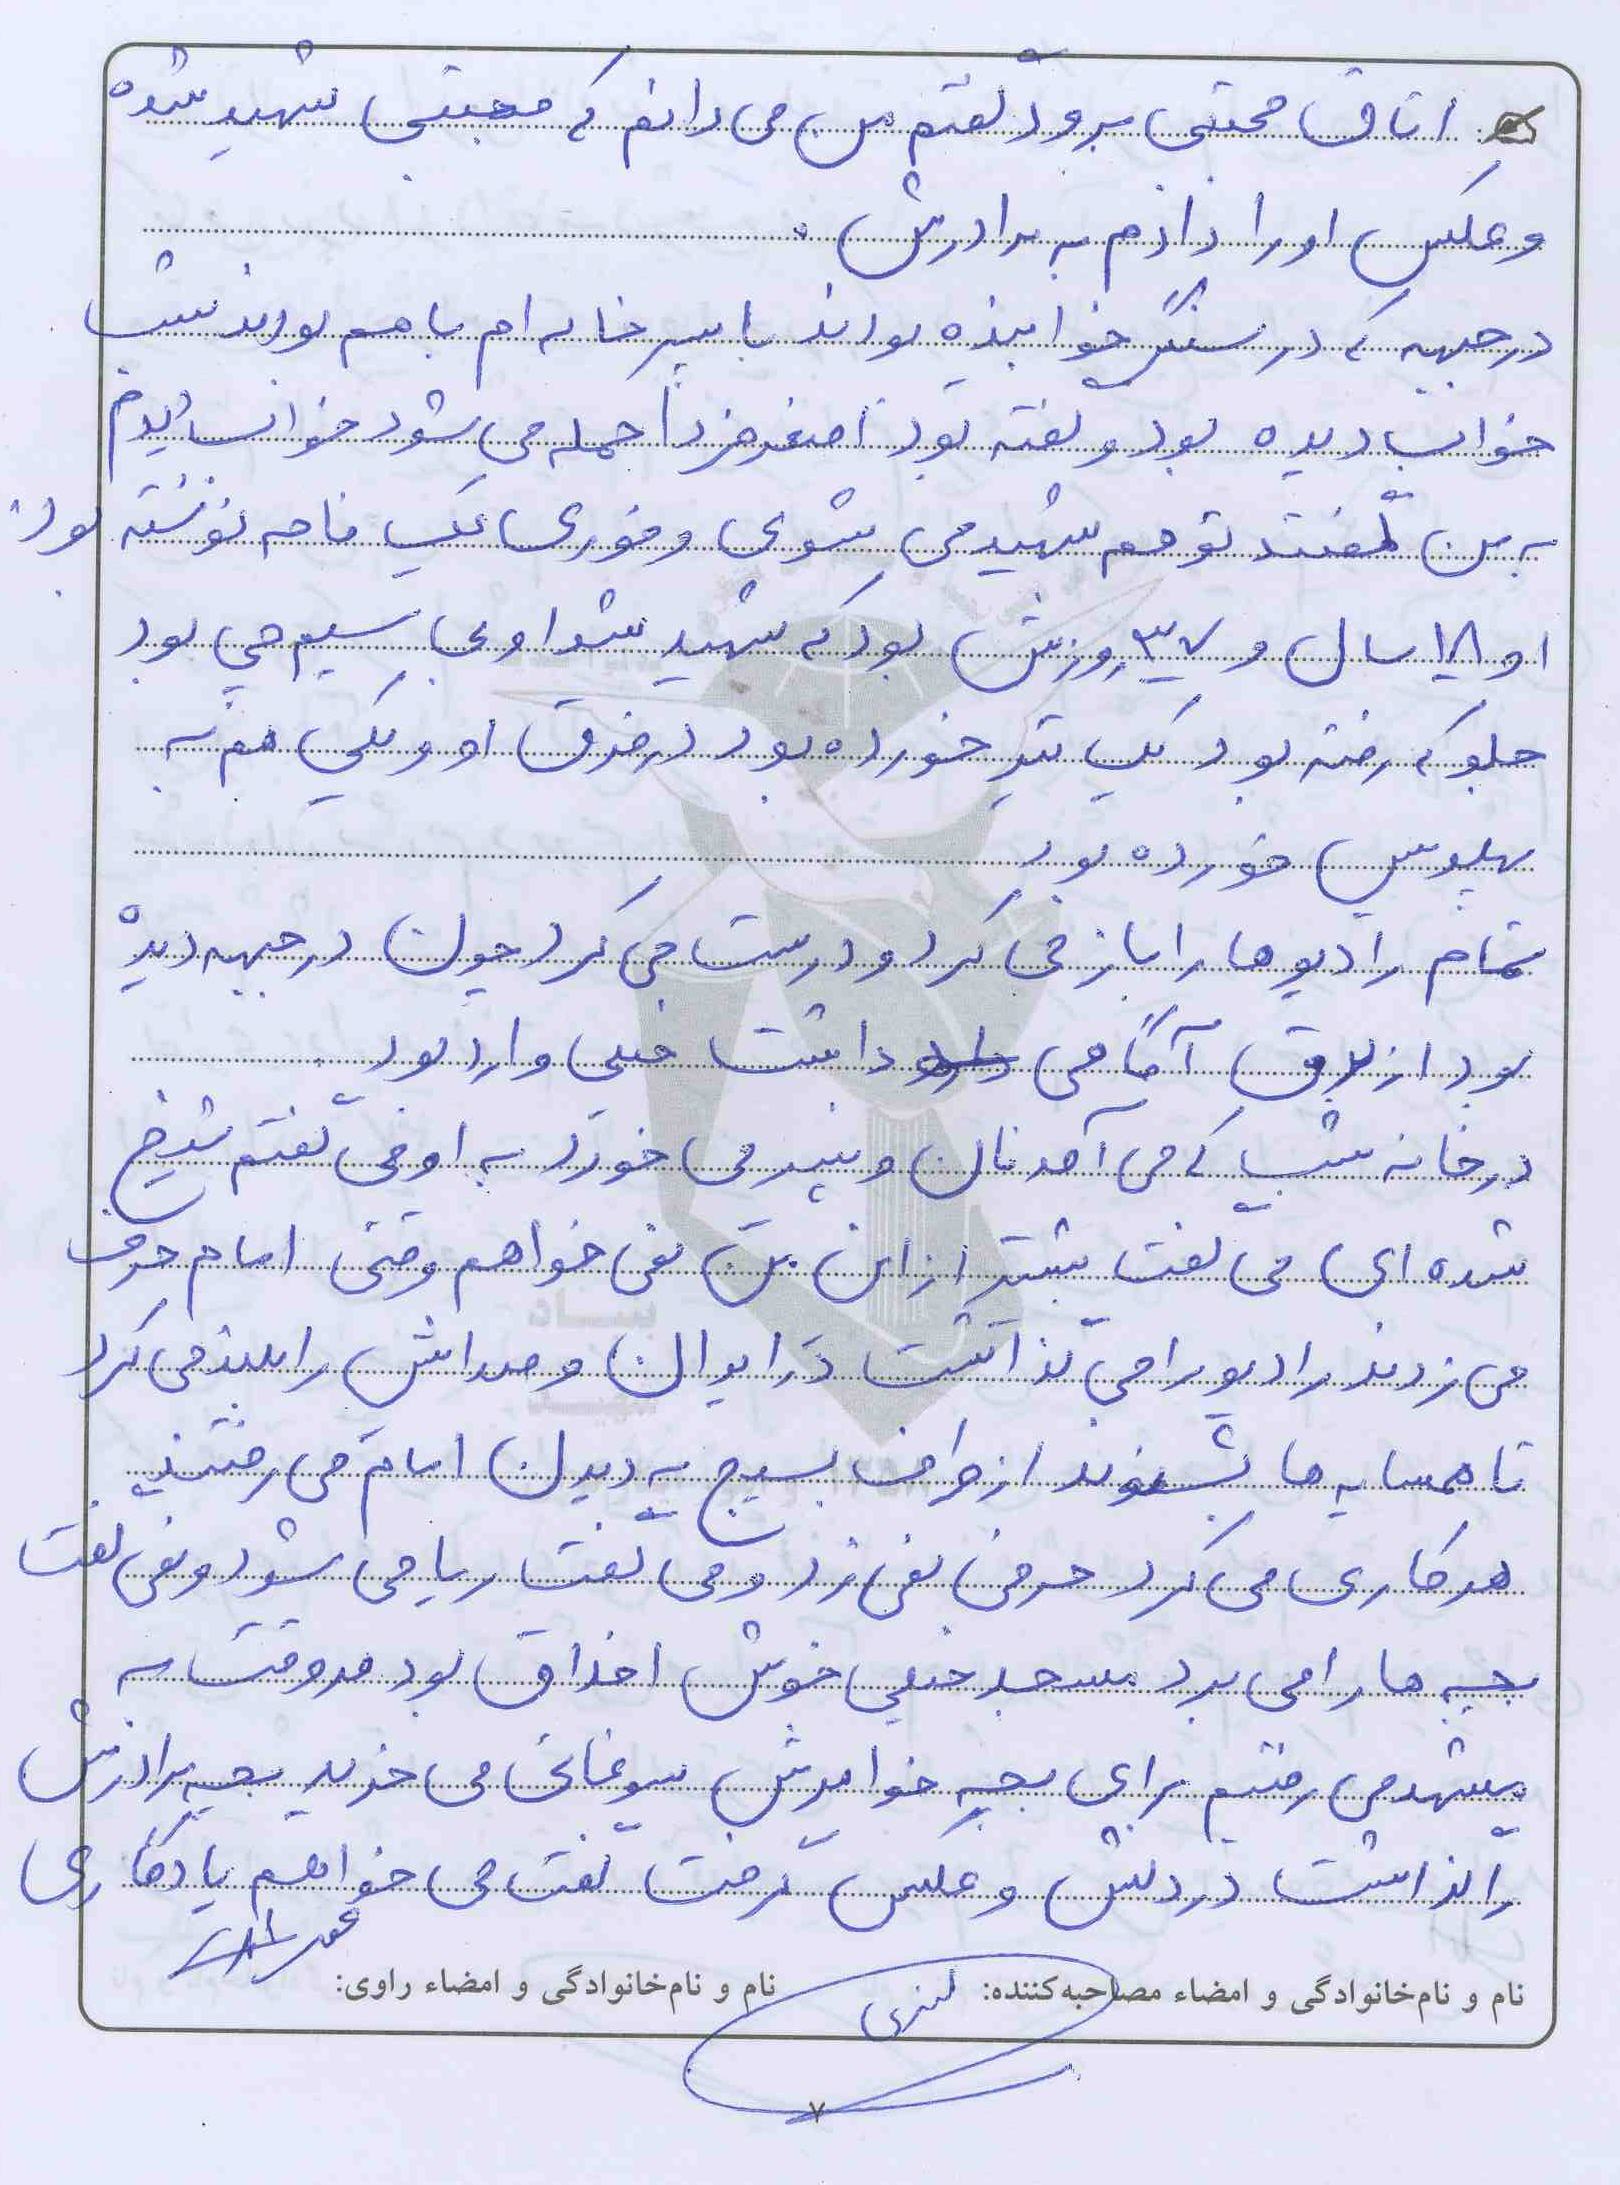 اتاق مجتبی برود گفتم من می دانم که مجتبی شهید شده
و عکس او را دادم به برادرش .
در جبهه که در سنگر خوابیده بودند با پسر خاله ام با هم بودند شب
خواب دیده بود و گفته بود اصغر فردا حمله می شود خواب دیدم
به من گفتند تو هم شهید می شوی و فوری یک نامه نوشته بود.
او ۱۸ سال و ۳۷ روزش بود که شهید شد او بی سیم چی بود
جلو که رفته بود یک تیر خورده بود در فرق او و یکی هم به
پهلویش خورده بود
تمام رادیوها را باز می کرد و درست می کرد چون در جبهه دیده
بود از برق آگاهی داشت خیلی وارد بود .
در خانه شب که می آمد نان و پنیر می خورد به او می گفتم شیخ
شده ای می گفت بیشتر از این من نمی خواهم وقتی امام حرف
می زدند رادیو را می گذاشت در ایوان و صدایش را بلند می کرد
تا همسایه ها بشنوند از طرف بسیج به دیدن امام می رفتند
هر کاری می کرد حرفی نمی زد و می گفت ریا می شود و نمی گفت
بچه ها را می برد مسجد خیلی خوش اخلاق بود هر وقت به
مشهد می رفتیم برای بچه خواهرش سوغاتی می خرید بچه برادرش
را گذاشت در دلش و عکس گرفت گفت می خواهم یادگاری
نام و نام‌خانوادگی و امضاء مصاحبه‌کننده: نام و نام‌خانوادگی و امضاء راوی:
۷